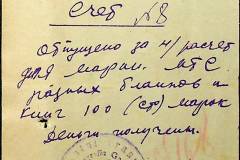 Счет №8
Отпущено за н/расчет
для марал. МТС
разных бланков и
книг 100 (сто) марок
Деньги получены.